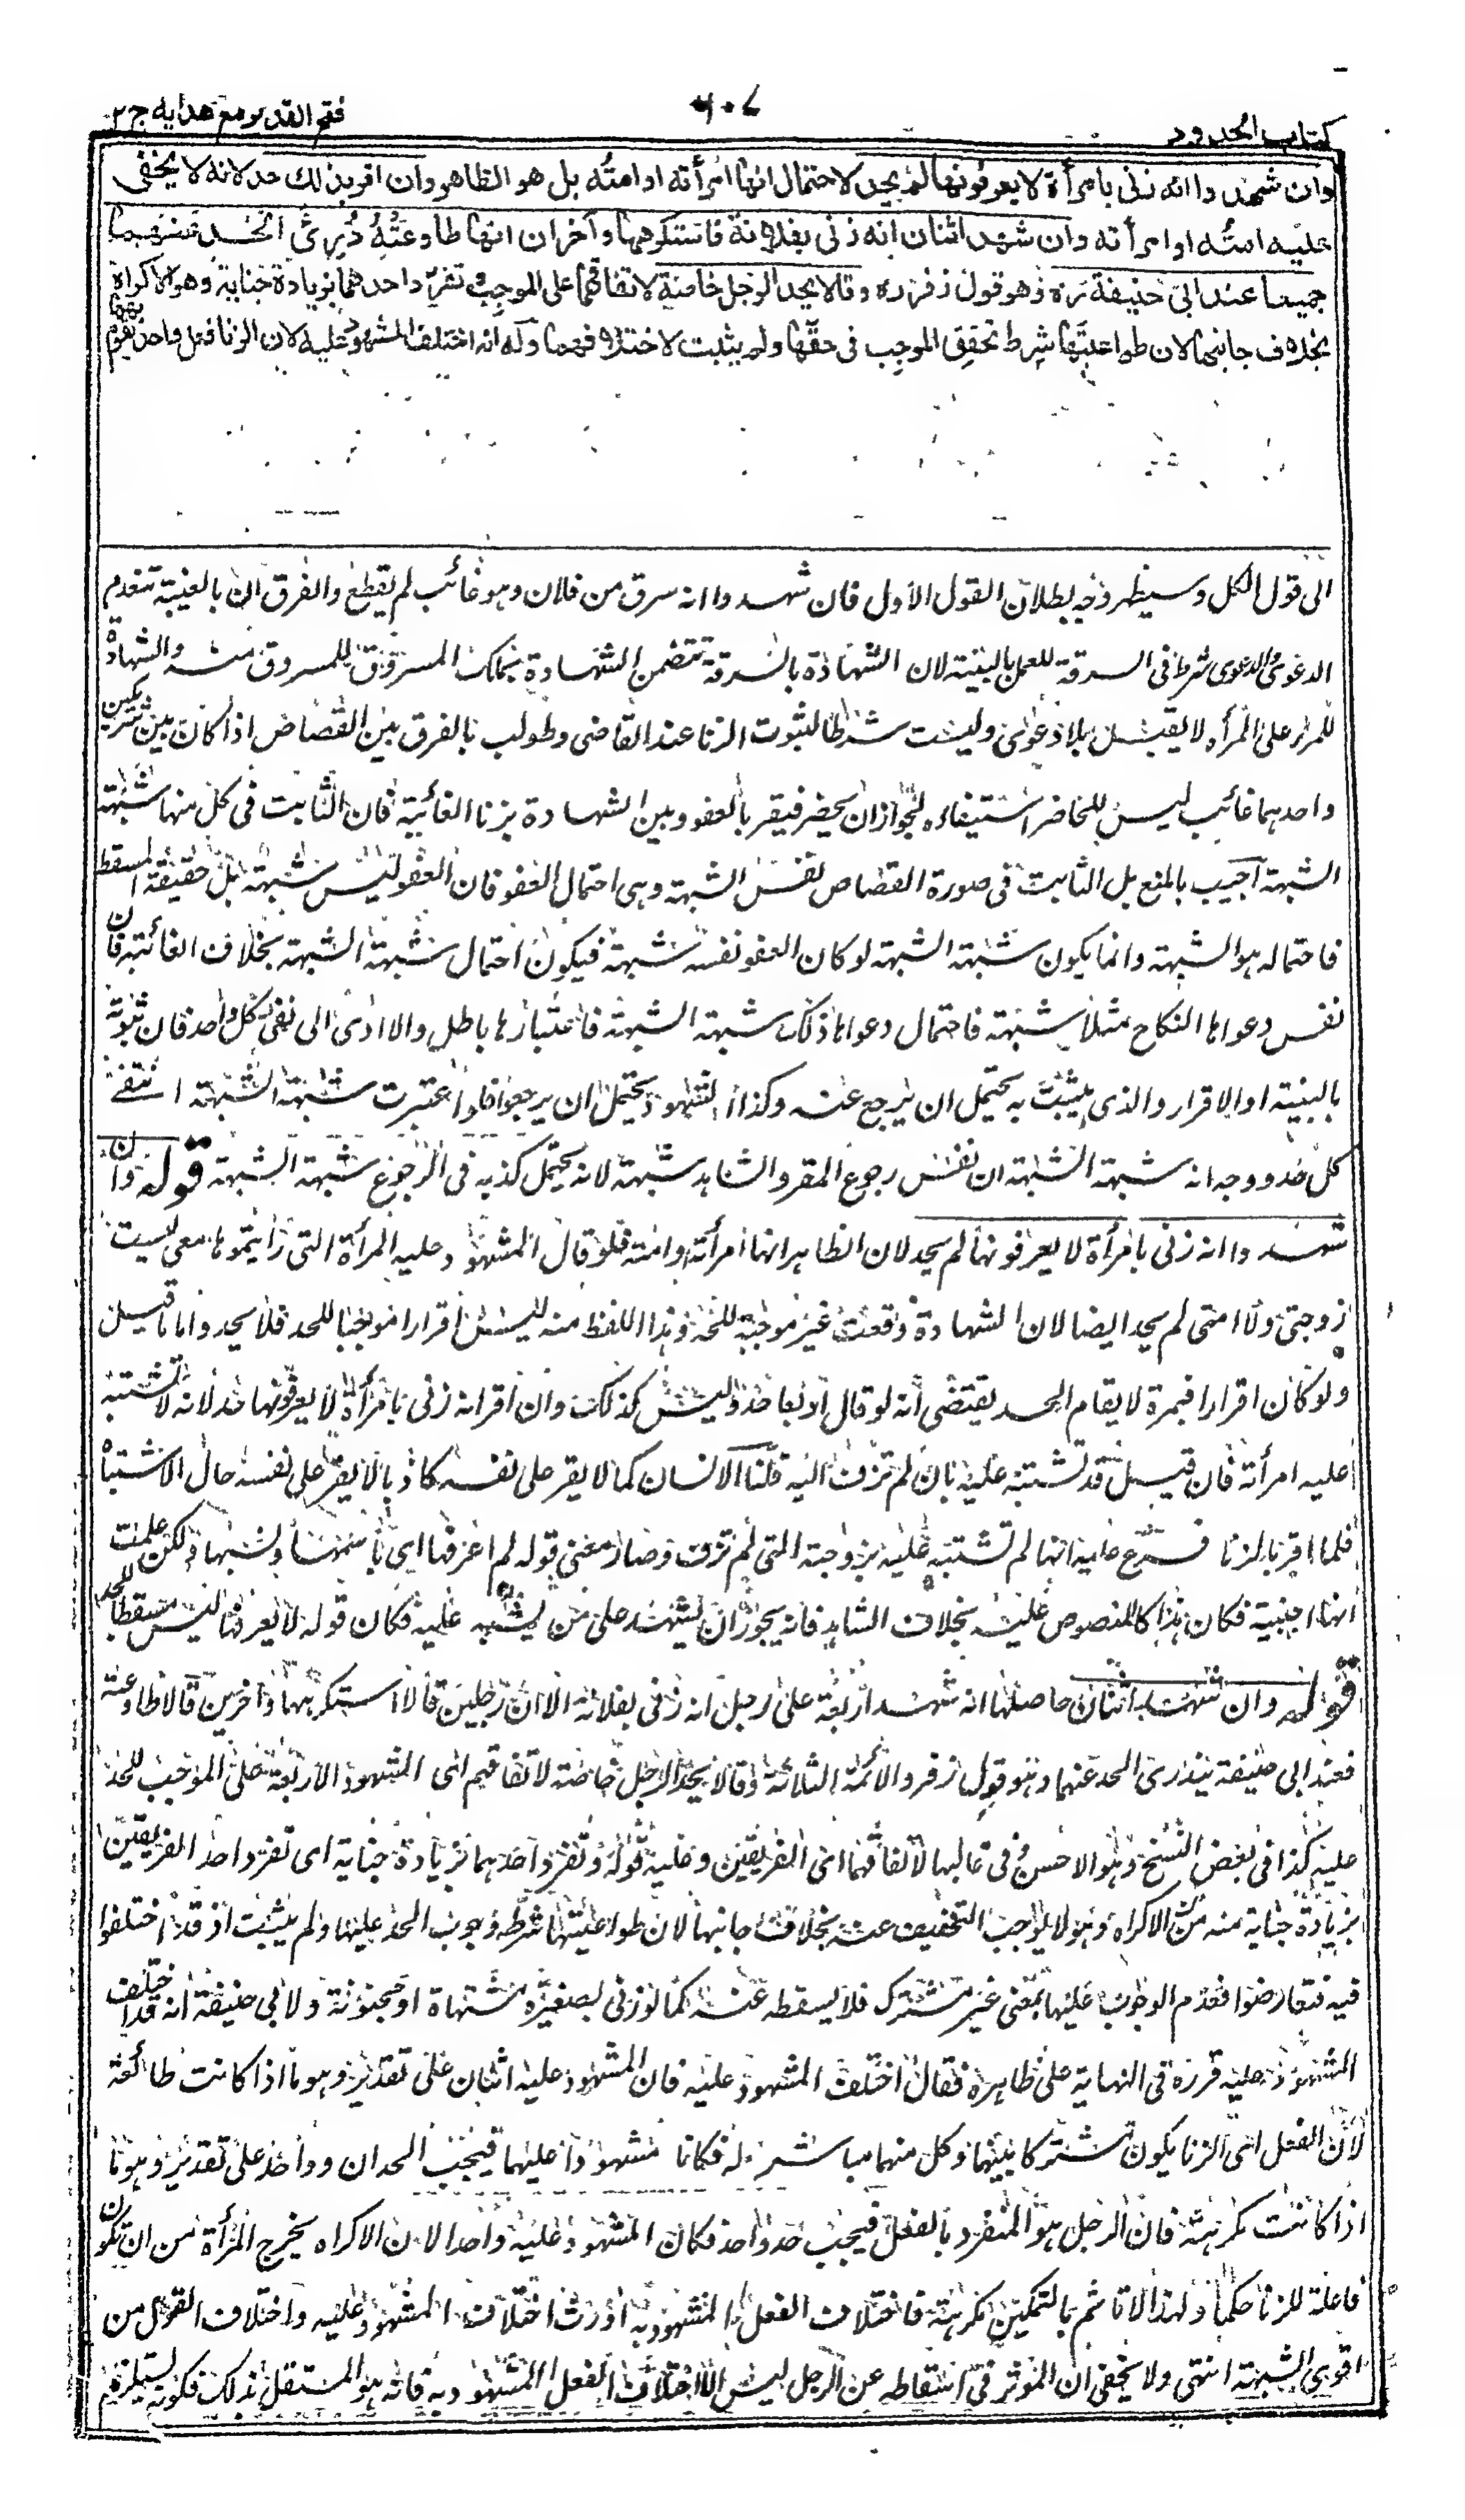 كتاب الحدود
٦٠٧
فتح القدير مع هدايه ج ٢
وان شهدوا انه زنى بامرأة لا يعرفونها لم يحد لاحتمال انها امرأته او امته بل هو الظاهر وان اقر بذلك حد لانه لا يخفى
عليه امته او امرأته وان شهد اثنان انه زنى بفلانة فاستكرهها وآخران انها طاوعته درئ الحد عنهما
جميعا عند ابى حنيفة ره وهو قول زفر ره وقالا يحد الرجل خاصة لاتفاقهما على الموجب وتفرد احدهما بزيادة جناية وهو الاكراه
بخلاف جانبها لان طواعيتها شرط تحقق الموجب فى حقها ولم يثبت لاختلافهما وله انه اختلف المشهود عليه لان الزنا فعل واحد يقوم بهما
الى قول الكل وسيظهر وجه بطلان القول الاول فان شهدوا انه سرق من فلان وهو غائب لم يقطع والفرق ان بالغيبة تنعدم
الدعوى والدعوى شرط فى السرقة للعمل بالبينة لان الشهادة بالسرقة تتضمن الشهادة بملك المسروق للمسروق منه والشهادة
للمرء على المرأ لا يقبل بلا دعوى وليست شرطا لثبوت الزنا عند القاضى وطولب بالفرق بين القصاص اذا كان بين شريكين
واحدهما غائب ليس للحاضر استيفاءه لجواز ان يحضر فيقر بالعفو وبين الشهادة بزنا الغائبة فان الثابت فى كل منهما شبهة
الشبهة اجيب بالمنع بل الثابت فى صورة القصاص نفس الشبهة وهى احتمال العفو فان العفو ليس شبهة بل حقيقة المسقط
فاحتماله هو الشبهة وانما يكون شبهة الشبهة لو كان العفو نفسه شبهة فيكون احتمال شبهة الشبهة بخلاف الغائبة فان
نفس دعواها النكاح مثلا شبهة فاحتمال دعواها ذلك شبهة الشبهة فاعتبارها باطل والا ادى الى نفى كل واحد فان ثبوته
بالبينة او الاقرار والذى يثبت به يحتمل ان يرجع عنه وكذا الشهود يحتمل ان يرجعوا فلو اعتبرت شبهة الشبهة انتفى
كل حد ووجه انه شبهة الشبهة ان نفس رجوع المقر والشاهد شبهة لانه يحتمل كذبه فى الرجوع شبهة الشبهة قوله وان
شهدوا انه زنى بامرأة لا يعرفونها لم يحد لان الظاهر انها امرأته او امته فلو قال المشهود عليه المرأة التى رأيتموها معى ليست
زوجتى ولا امتى لم يحد ايضا لان الشهادة وقعت غير موجبة للحد وهذا اللفظ منه ليس اقرارا موجبا للحد فلا يحد واما ما قيل
ولو كان اقرارا فبمرة لا يقام الحد يقتضى أنه لو قال اربعا حد وليس كذلك وان اقر انه زنى بامرأة لا يعرفونها حد لانه لا تشتبه
عليه امرأته فان قيل قد تشتبه عليه بان لم تزف اليه قلنا الانسان كما لا يقر على نفسه كاذبا لا يقر على نفسه حال الاشتباه
فلما اقر بالزنا فرع عليه انها لم تشتبه عليه بزوجته التى لم تزف وصار معنى قوله لم اعرفها اى باسمها ونسبها ولكن علمت
انها اجنبية فكان هذا كالمنصوص عليه بخلاف الشاهد فانه يجوز ان يشهد على من يشتبه عليه فكان قوله لا يعرفها ليس مسقطا للحد
قوله وان شهد اثنان حاصلها انه شهد اربعة على رجل انه زنى بفلانة الا ان رجلين قالا استكرهها وآخرين قالا طاوعته
فعند ابى حنيفة يندرئ الحد عنهما وهو قول زفر والائمة الثلاثة وقالا يحد الرجل خاصة لاتفاقهم اى الشهود الاربعة على الموجب للحد
عليه كذا فى بعض النسخ وهو الاحسن وفى غالبها لاتفاقهما اى الفريقين وعليه قوله وتفرد احدهما بزيادة جناية اى تفرد احد الفريقين
بزيادة جناية منه من الاكراه وهو لا يوجب التخفيف عنه بخلاف جانبها لان طواعيتها شرط وجوب الحد عليها ولم يثبت اذ قد اختلفوا
فيه فتعارضوا فعدم الوجوب عليها بمعنى غير مشترك فلا يسقطه عنه كما لو زنى بصغيرة مشتهاة او مجنونة ولابى حنيفة انه قد اختلف
المشهود عليه قرره فى النهاية على ظاهره فقال اختلف المشهود عليه فان المشهود عليه اثنان على تقدير وهو ما اذا كانت طائعة
لان الفعل اى الزنا يكون مشتركا بينهما وكل منهما مباشر له فكانا مشهودا عليهما فيجب الحدان وواحد على تقدير وهو ما
اذا كانت مكرهة فان الرجل هو المنفرد بالفعل فيجب حد واحد فكان المشهود عليه واحدا لان الاكراه يخرج المرأة من ان تكون
فاعلة للزنا حكما ولهذا لا تأثم بالتمكين مكرهة فاختلاف الفعل المشهود به اورث اختلاف المشهود عليه واختلاف القول من
اقوى الشبهة انتهى ولا يخفى ان المؤثر فى اسقاطه عن الرجل ليس الا اختلاف الفعل المشهود به فانه هو المستقل بذلك فكونه يستلزم